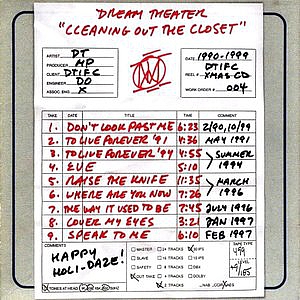 DREAM THEATER
"CLEANING OUT THE CLOSET"
ARTIST DT
PRODUCER MP
CLIENT DTIFC
ENGINEER DO
ASSOC ENG X
DATE 1990-1999
DTIFC
REEL # XMAS CD
WORK ORDER 004
TAKE TITLE TIME COMMENT
1. DON'T LOOK PAST ME 6:23 2/90, 10/99
2. TO LIVE FOREVER '91 4:36 MAY 1991
3. TO LIVE FOREVER '94 4:55 SUMMER
4. EVE 5:10 1994
5. RAISE THE KNIFE 11:35 MARCH
6. WHERE ARE YOU NOW 7:26 1996
7. THE WAY IT USED TO BE 7:45 JULY 1996
8. COVER MY EYES 3:21 JAN 1997
9. SPEAK TO ME 6:10 FEB 1997
COMMENTS
HAPPY
HOLI-DAZE!
MASTER 24 TRACKS 30 IPS
SLAVE 16 TRACKS 15 IPS
SAFETY 8 TRACKS
OUT TAKE DOLBY
TAPE TYPE
499
TONES AT HEAD